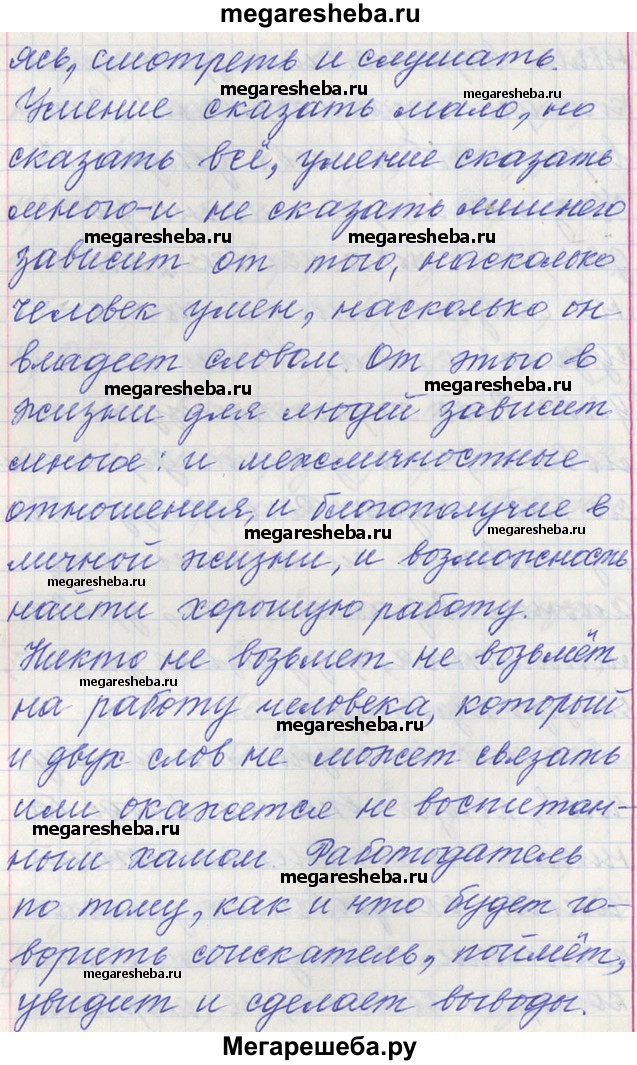 megaresheba.ru
ясь, смотреть и слушать.
megaresheba.ru
megaresheba.ru
Умение сказать мало, но
сказать всё, умение сказать
много-и не сказать лишнего
megaresheba.ru
megaresheba.ru
зависит от того, насколько
человек умен, насколько он
владеет словом. От этого в
megaresheba.ru
megaresheba.ru
жизни для людей зависит
многое: и межличностные
отношения, и благополучие в
megaresheba.ru
megaresheba.ru
личной жизни, и возможность
megaresheba.ru
найти хорошую работу.
Никто не возьмет не возьмёт
megaresheba.ru
на работу человека, который
megaresheba.ru
и двух слов не может связать
или окажется не воспитан-
megaresheba.ru
ным хамом. Работодатель
megaresheba.ru
по тому, как и что будет го-
ворить соискатель, поймёт,
megaresheba.ru
увидит и сделает выводы.
Мегарешеба.ру